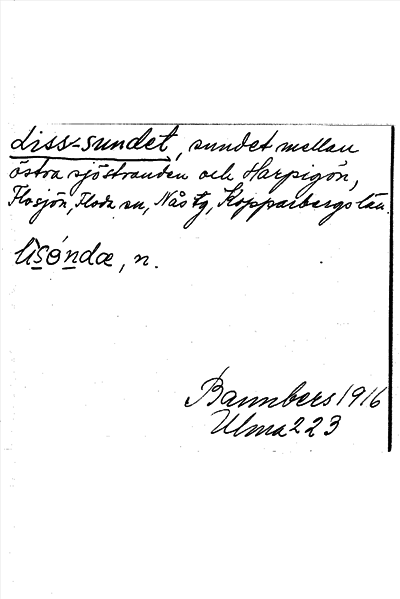 Liss-sundet, sundet mellan
östra sjöstranden och Harpigön,
Flosjön, Floda sn, Nås tg, Kopparbergs län.
lisǿndæ, n.
Bannbers 1916
Ulma 223